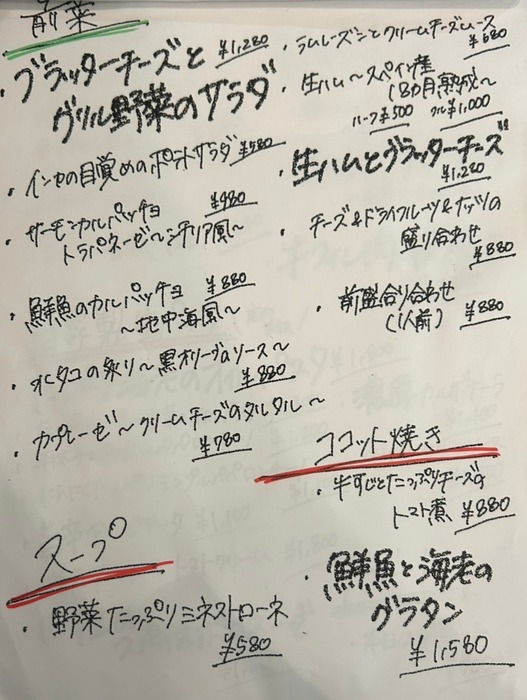 前菜
・ブラッターチーズと ¥1,280
グリル野菜のサラダ
・インカの目覚めのポテトサラダ ¥580
・サーモンカルパッチョ ¥980
トラパネーゼ〜シチリア風〜
・鮮魚のカルパッチョ ¥880
〜地中海風〜
・水タコの炙り〜黒オリーブのソース〜
¥880
・カプレーゼ〜クリームチーズのタルタル〜
¥780
スープ
・野菜たっぷりミネストローネ
¥580
・ラムレーズンとクリームチーズムース
¥680
・生ハム〜スペイン産
18カ月熟成〜
ハーフ¥500 フル¥1,000
・生ハムとブラッターチーズ
¥1,280
・チーズ&ドライフルーツ&ナッツの
盛り合わせ
¥880
・前盛合り合わせ
(1人前) ¥880
ココット焼き
・牛すじとたっぷりチーズの
トマト煮 ¥880
・鮮魚と海老の
グラタン
¥1,580